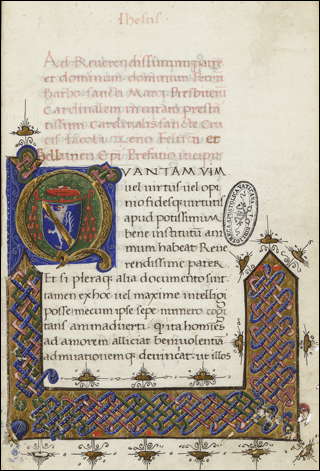 Ihesus
Ad Reverendissimum patrem
et dominum dominum Petrum
Barbo sancti Marci Presbiterum
Cardinalem in vitam presta
tissimi cardinalis sancte Cru
cis Iacobi Zeno Feltren et
Bellunen Epi Prefatio incipit
QVANTAM VIM
vel virtus vel opi
nio fidesq virtutis
apud potissimum
bene instituti ani
mum habeat Reve
rendissime pater
Et si pleraq alia documento sunt
tamen ex hoc vel maxime intelligi
posse mecum ipse sepe numero cogi
tans animadverti q ita homines
ad amorem alliciat benivolentia
admirationemq devincat ut illos